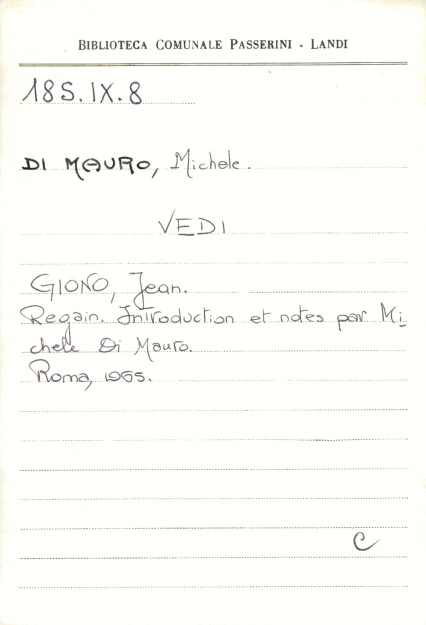 BIBLIOTECA COMUNALE PASSERINI - LANDI
18S.IX.8
DI MAURO, Michele.
VEDI
GIONO, Jean.
Regain. Introduction et notes par Mi
chele Di Mauro.
Roma, 1965.
C